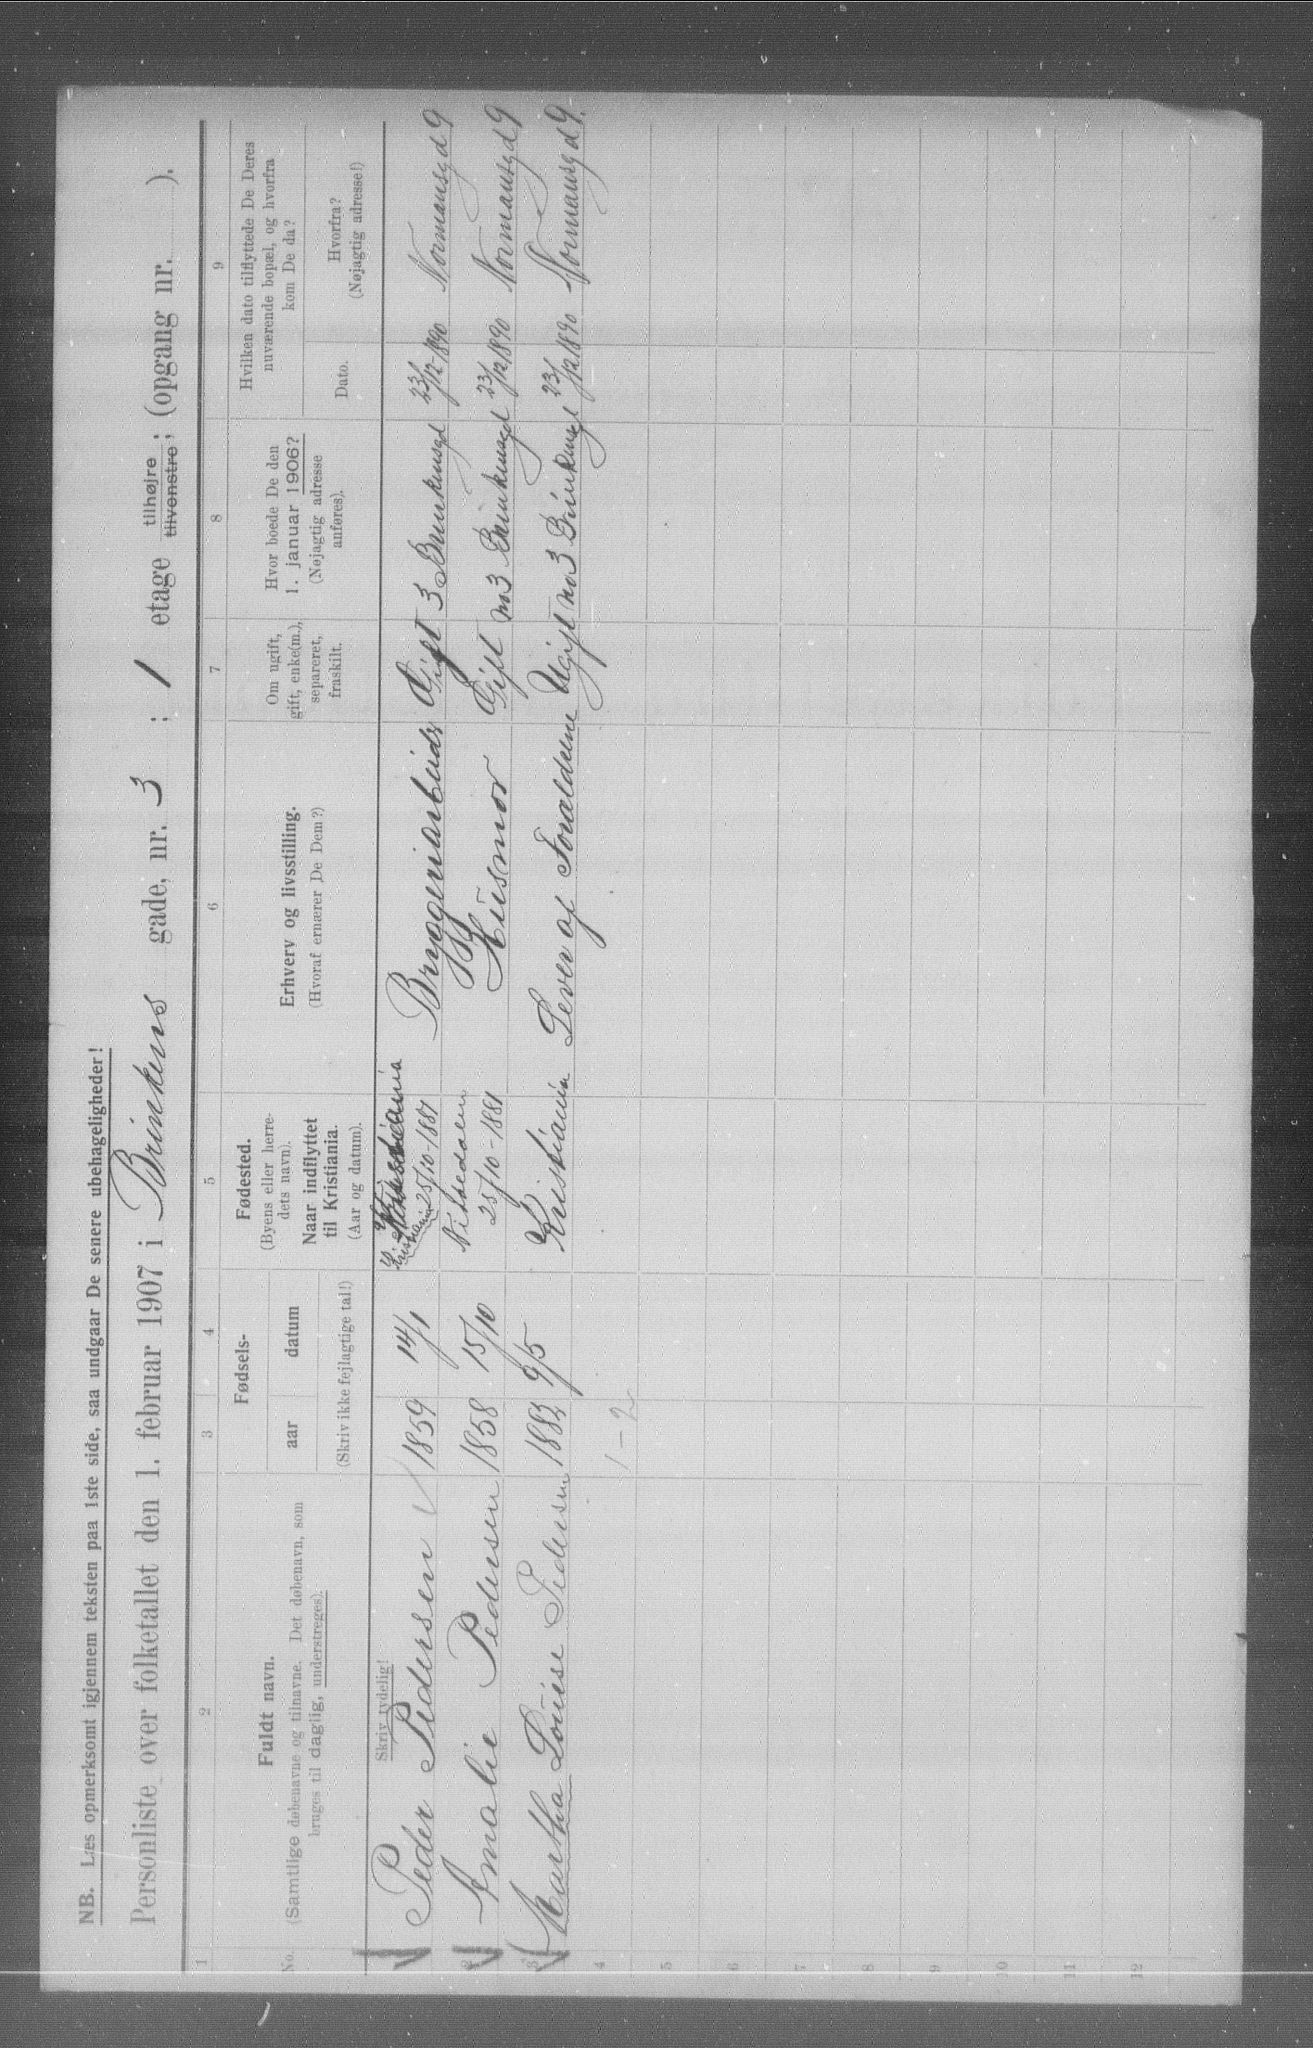 NB. Læs opmerksomt igjennem teksten paa 1ste side, saa undgaar De senere ubehageligheder!
Personliste over folketallet den 1. februar 1907 i Brinkens gade, nr. 3 ; 1 etage tilhøjre ; (opgang nr. ).
tilvenstre;
1 2 3 4 5 6 7 8 9
No.
Fuldt navn.
(Samtlige døbenavne og tilnavne. Det døbenavn, som
bruges til daglig, understreges).
Fødsels-
aar datum
(Skriv ikke fejlagtige tal!)
Fødested.
(Byens eller herre-
dets navn).
Naar indflyttet
til Kristiania.
(Aar og datum).
Erhverv og livsstilling.
(Hvoraf ernærer De Dem?)
Om ugift,
gift, enke(m.),
separeret,
fraskilt.
Hvor boede De den
1. januar 1906?
(Nøjagtig adresse
anføres).
Hvilken dato tilflyttede De Deres
nuværende bopæl, og hvorfra
kom De da?
Dato.
Hvorfra?
(Nøjagtig adresse!)
Skriv tydelig!
Peder Pedersen 1859 14/1 Kristiania 25/10-1881 Bryggeriarbeider Gift 3 Brinkensgd 23/12-1890 Normansgd 9
2 Amalie Pedersen 1858 15/10 Nittedalen 25/10-1881 Husmor Gift no 3 Brinkensgd 23/12 1890 Normansgd 9
3 Martha Louise Pedersen 1883 9/5 Kristiania Lever af Foraldrene Ugift no 3 Brinkensgd 23/12 1890 Normansgd 9.
4 1-2
5
6
7
8
9
10
11
12